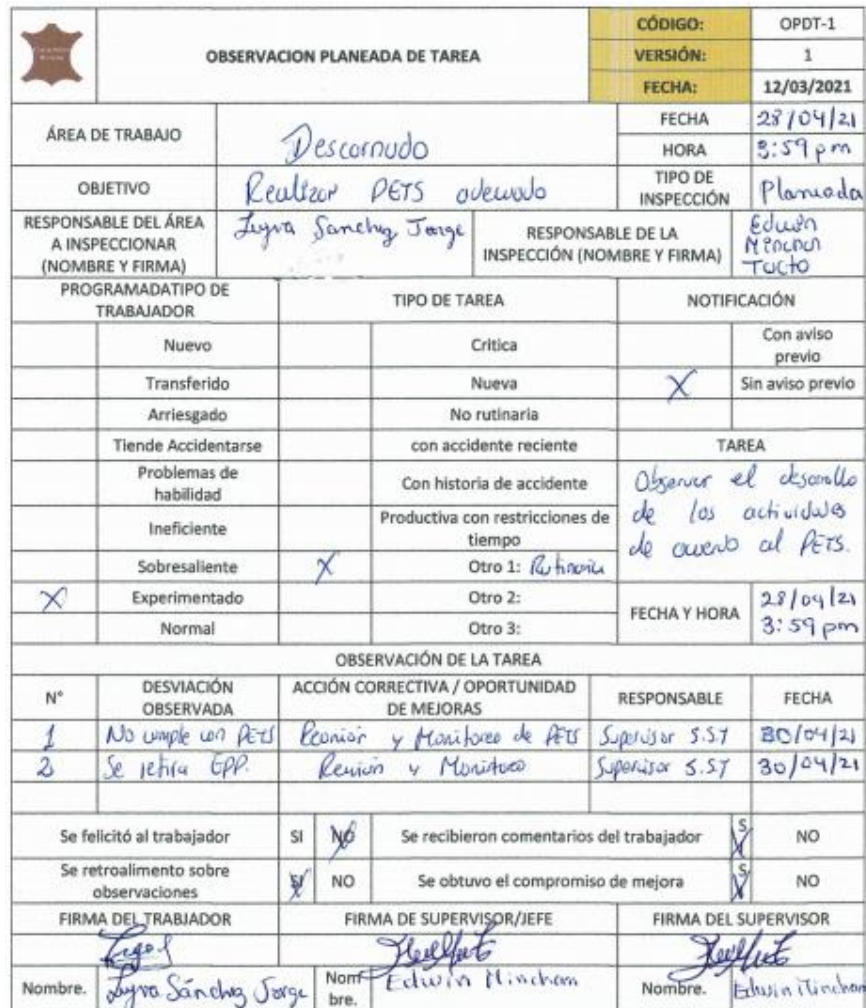 OBSERVACION PLANEADA DE TAREA
CÓDIGO: OPDT-1
VERSIÓN: 1
FECHA: 12/03/2021
ÁREA DE TRABAJO Descarnudo
FECHA 28/04/21
HORA 3:59 pm
OBJETIVO Realizar PETS adecuado
TIPO DE INSPECCIÓN Planeada
RESPONSABLE DEL ÁREA A INSPECCIONAR (NOMBRE Y FIRMA) Leyva Sanchez Jorge
RESPONSABLE DE LA INSPECCIÓN (NOMBRE Y FIRMA) Edwin Minchan Tucto
PROGRAMADATIPO DE TRABAJADOR TIPO DE TAREA NOTIFICACIÓN
Nuevo Critica Con aviso previo
Transferido Nueva X Sin aviso previo
Arriesgado No rutinaria
Tiende Accidentarse con accidente reciente TAREA
Problemas de habilidad Con historia de accidente
Observar el desarrollo
de las actividades
de acuerdo al PETS.
Ineficiente Productiva con restricciones de tiempo
Sobresaliente X Otro 1: Rutinaria
X Experimentado Otro 2:
FECHA Y HORA 28/04/21
3:59 pm
Normal Otro 3:
OBSERVACIÓN DE LA TAREA
N° DESVIACIÓN OBSERVADA ACCIÓN CORRECTIVA / OPORTUNIDAD DE MEJORAS RESPONSABLE FECHA
1 No cumple con PETS Reunión y Monitoreo de PETS Supervisor S.ST 30/04/21
2 Se retira EPP. Reunión y Monitoreo Supervisor S.ST 30/04/21
Se felicitó al trabajador SI NO Se recibieron comentarios del trabajador S NO
Se retroalimento sobre observaciones SI NO Se obtuvo el compromiso de mejora S NO
FIRMA DEL TRABJADOR FIRMA DE SUPERVISOR/JEFE FIRMA DEL SUPERVISOR
Nombre. Leyva Sánchez Jorge Nombre. Edwin Minchan Nombre. Edwin Minchan